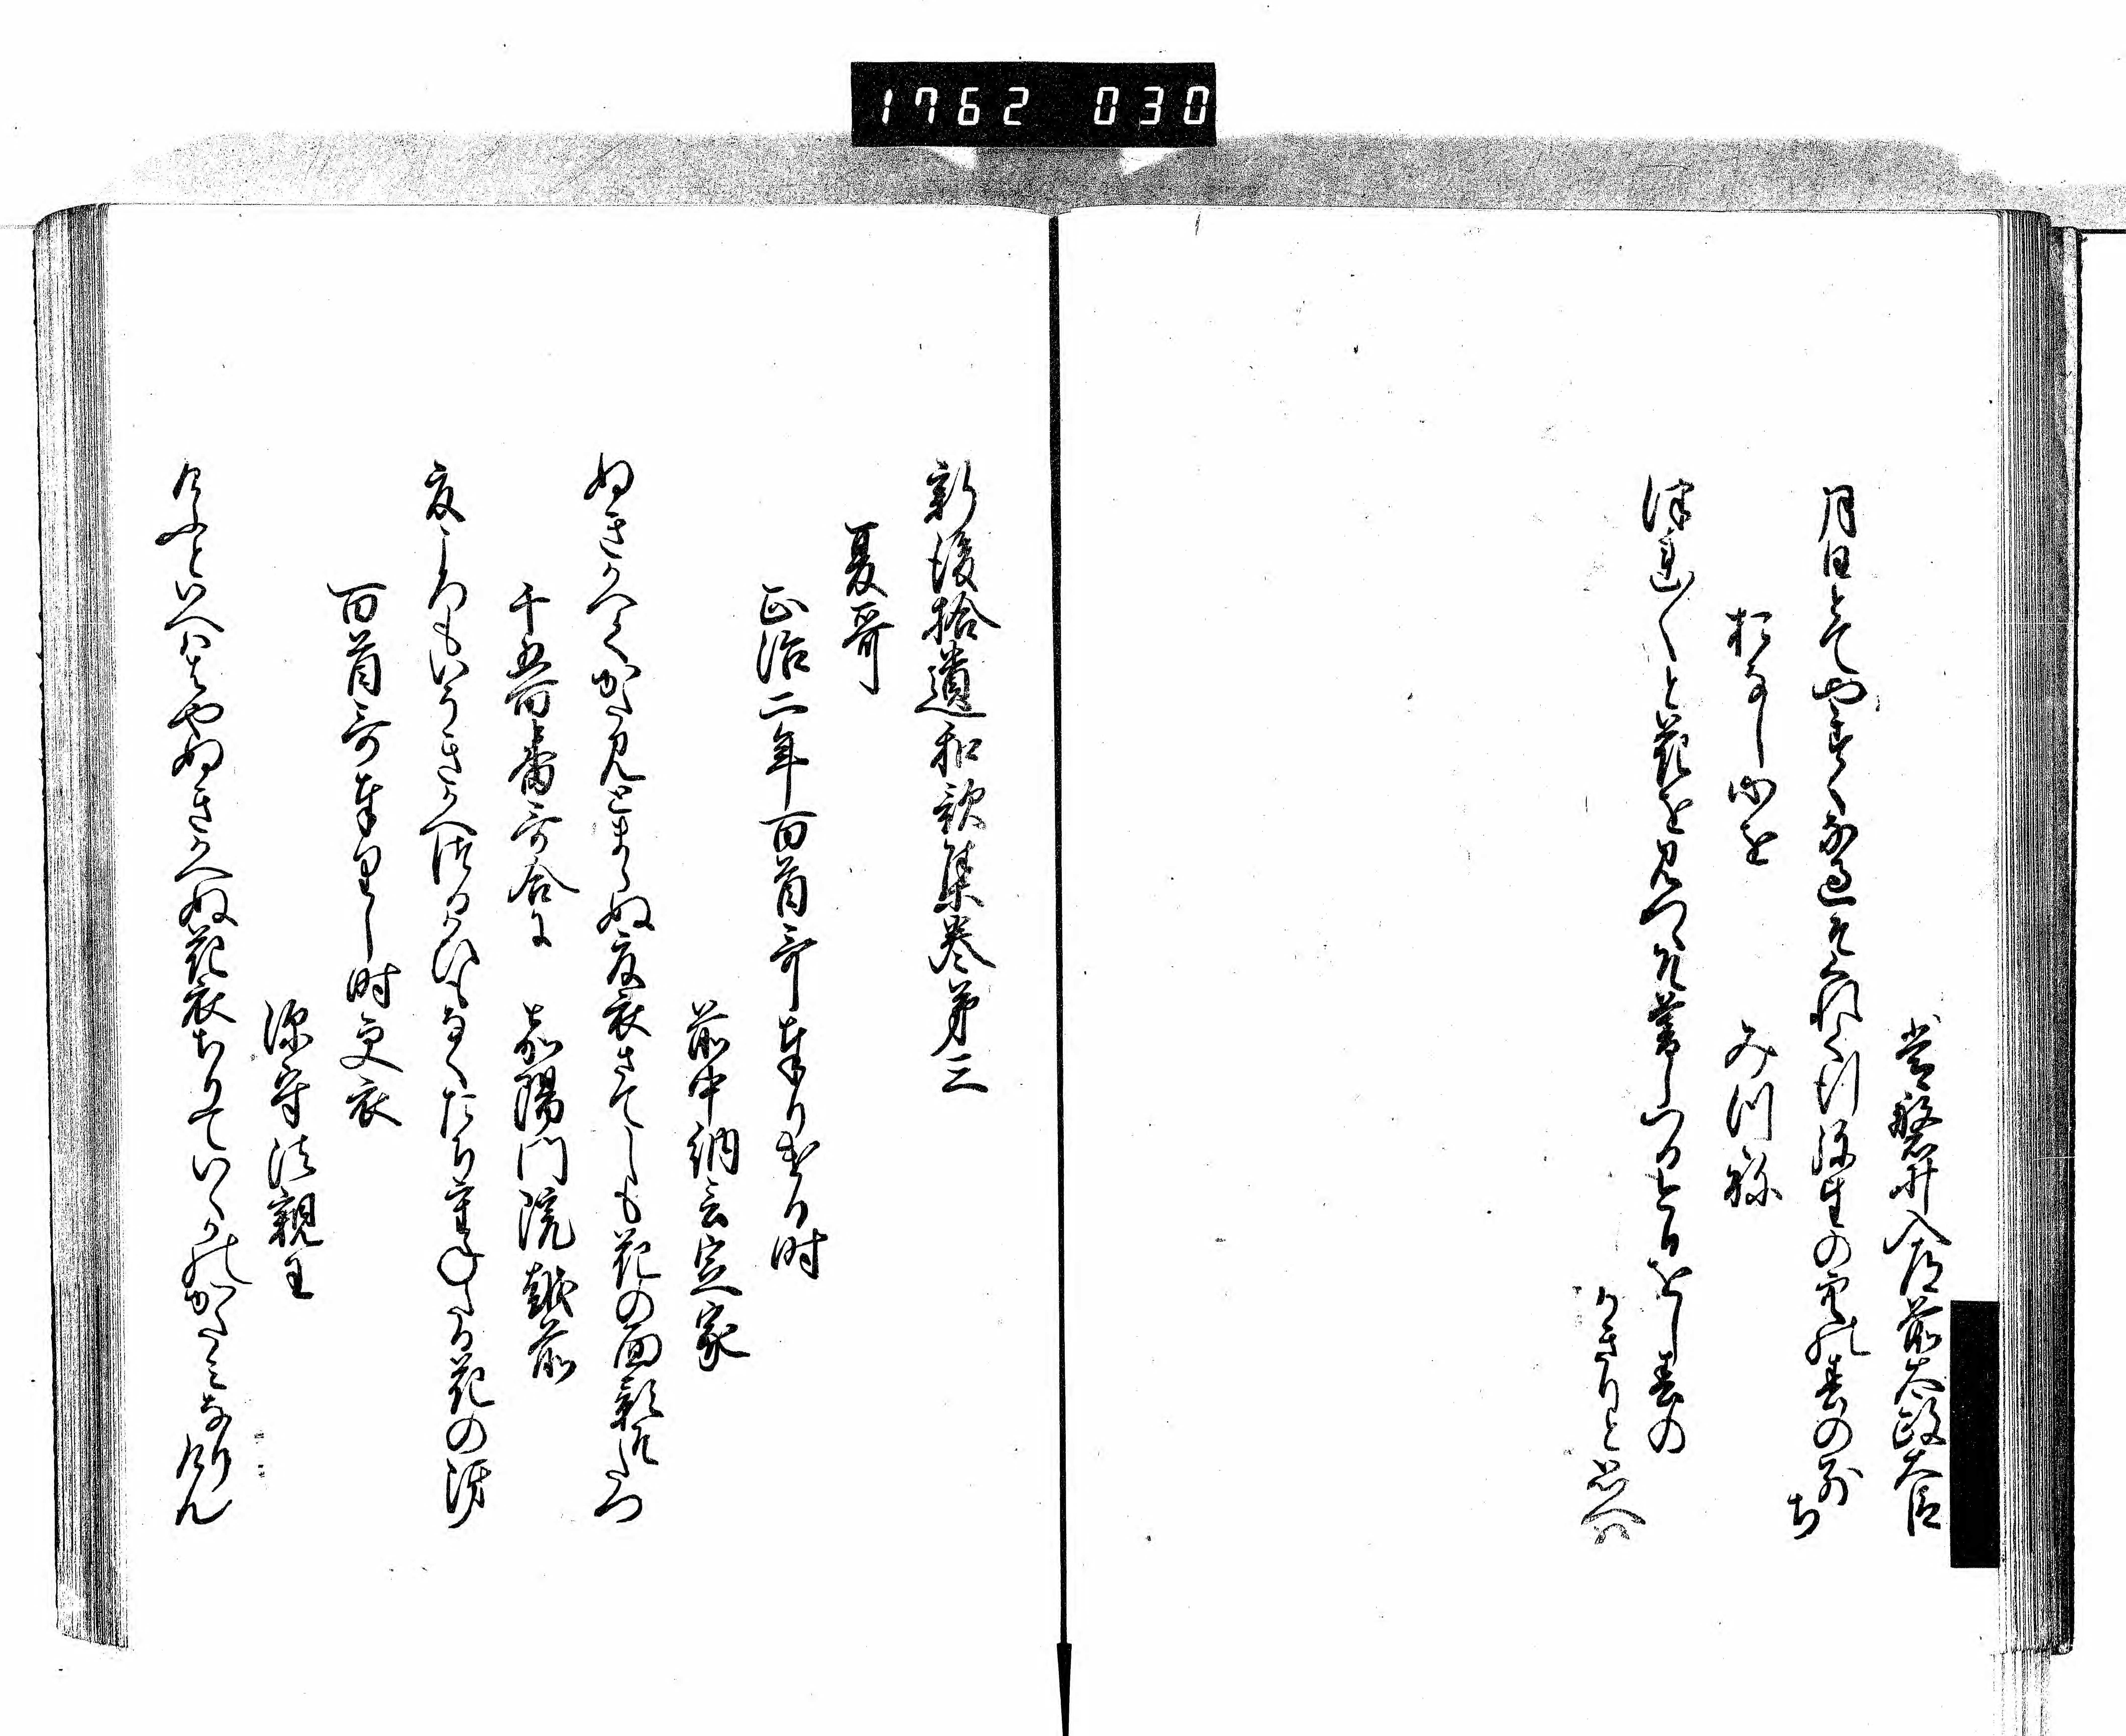 1762 030
常磐井入道前太政大臣
月日とてやすくな過そくれて行弥生の空の春の別ち
おなし心を
みつね
つれ〳〵と花を見つゝそ暮しつるけふをし春の
かきりと思へは
新後拾遺和歌集巻第三
夏哥
正治二年百首哥奉りける時
前中納言定家
ぬきかへてかたみとまらぬ夏衣さてしも花の面影そたつ
千五百番哥合に 嘉陽門院越前
夏ころもいそきかへつるかひもなくたちかさねたる花の
百首哥奉りし時更衣
深守法親王
けふといへははやぬきかへぬ花衣ちりていくかのかたみなりけん